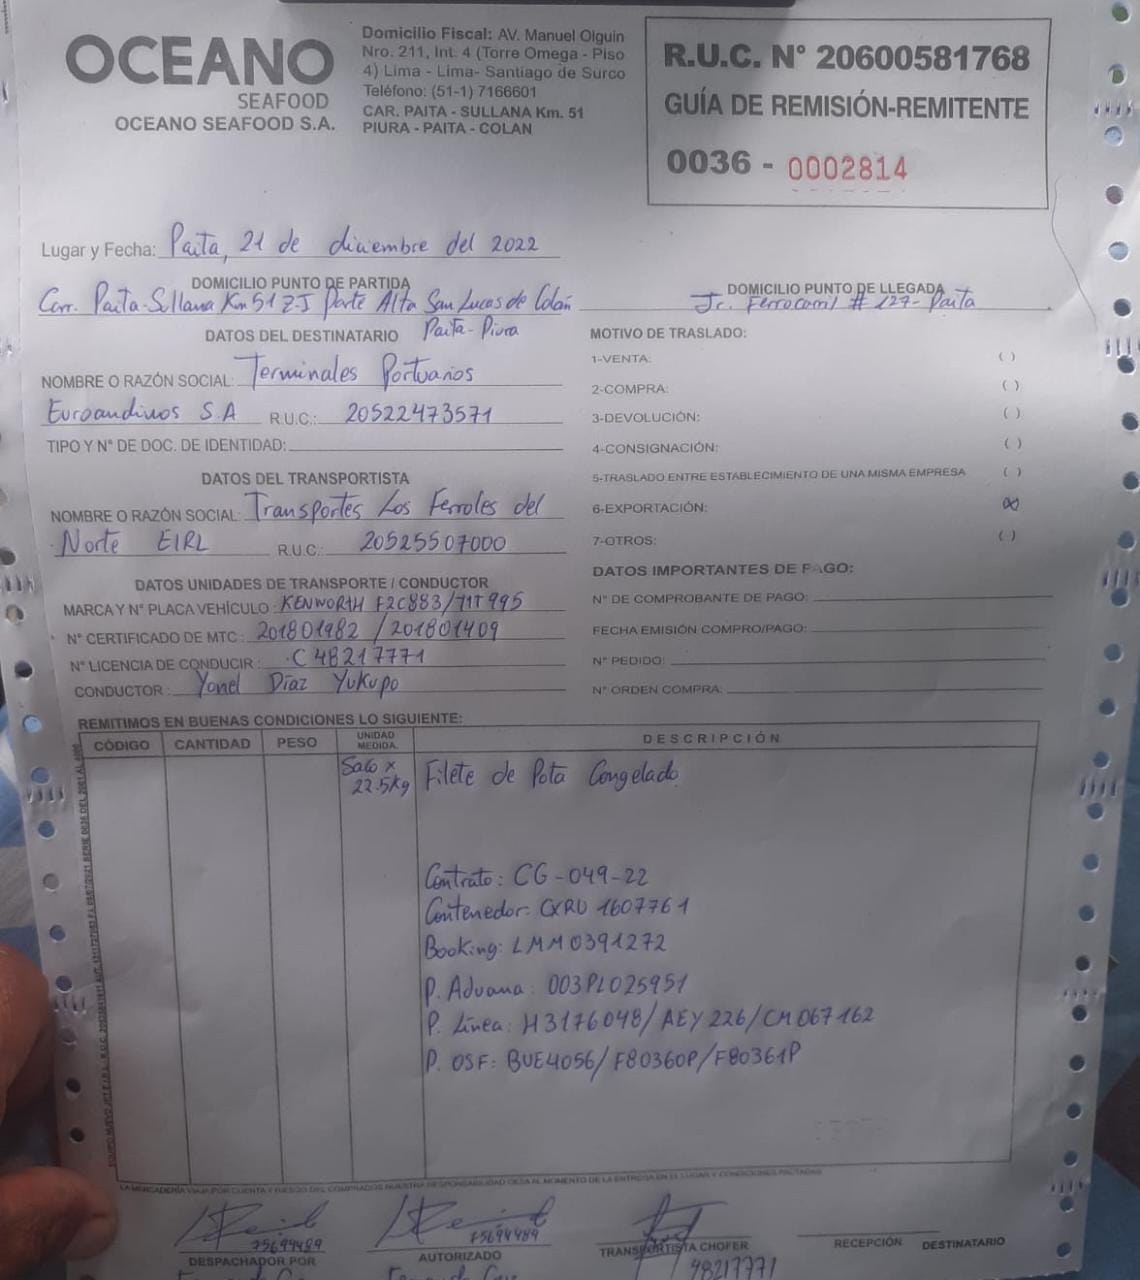 OCEANO
SEAFOOD
OCEANO SEAFOOD S.A.
Domicilio Fiscal: AV. Manuel Olguin
Nro. 211, Int. 4 (Torre Omega - Piso
4) Lima - Lima- Santiago de Surco
Teléfono: (51-1) 7166601
CAR. PAITA - SULLANA Km. 51
PIURA - PAITA - COLAN
R.U.C. N° 20600581768
GUÍA DE REMISIÓN-REMITENTE
0036 - 0002814
Lugar y Fecha: Paita, 21 de diciembre del 2022
DOMICILIO PUNTO DE PARTIDA
Carr. Paita-Sullana Km 51 Z.I Parte Alta San Lucas de Colán
Paita-Piura
DOMICILIO PUNTO DE LLEGADA
Jr. Ferrocarril # 127- Paita
DATOS DEL DESTINATARIO
NOMBRE O RAZÓN SOCIAL: Terminales Portuarios
Euroandinos S.A R.U.C.: 20522473571
TIPO Y N° DE DOC. DE IDENTIDAD:
DATOS DEL TRANSPORTISTA
NOMBRE O RAZÓN SOCIAL: Transportes Los Ferroles del
Norte EIRL R.U.C.: 20525507000
DATOS UNIDADES DE TRANSPORTE / CONDUCTOR
MARCA Y N° PLACA VEHÍCULO: KENWORTH F2C883/T1T995
N° CERTIFICADO DE MTC: 201801982 / 201801409
N° LICENCIA DE CONDUCIR: C48217771
CONDUCTOR: Yonel Díaz Yukupo
MOTIVO DE TRASLADO:
1-VENTA: ( )
2-COMPRA: ( )
3-DEVOLUCIÓN: ( )
4-CONSIGNACIÓN: ( )
5-TRASLADO ENTRE ESTABLECIMIENTO DE UNA MISMA EMPRESA ( )
6-EXPORTACIÓN: (x)
7-OTROS: ( )
DATOS IMPORTANTES DE PAGO:
N° DE COMPROBANTE DE PAGO:
FECHA EMISIÓN COMPRO/PAGO:
N° PEDIDO:
N° ORDEN COMPRA:
REMITIMOS EN BUENAS CONDICIONES LO SIGUIENTE:
CÓDIGO CANTIDAD PESO UNIDAD MEDIDA. DESCRIPCIÓN
Saco x 22.5kg Filete de Pota Congelado
Contrato: CG-049-22
Contenedor: CXRU 1607761
Booking: LMM0391272
P. Aduana: 003PL025951
P. Línea: H3176048/AEY226/CM067162
P. OSF: BUE4056/F80360P/F80361P
LA MERCADERÍA VIAJA POR CUENTA Y RIESGO DEL COMPRADOR NUESTRA RESPONSABILIDAD CESA AL MOMENTO DE LA ENTREGA EN EL LUGAR Y CONDICIONES PACTADAS
75694489
DESPACHADOR POR
75694489
AUTORIZADO
TRANSPORTISTA CHOFER
48217771
RECEPCIÓN DESTINATARIO